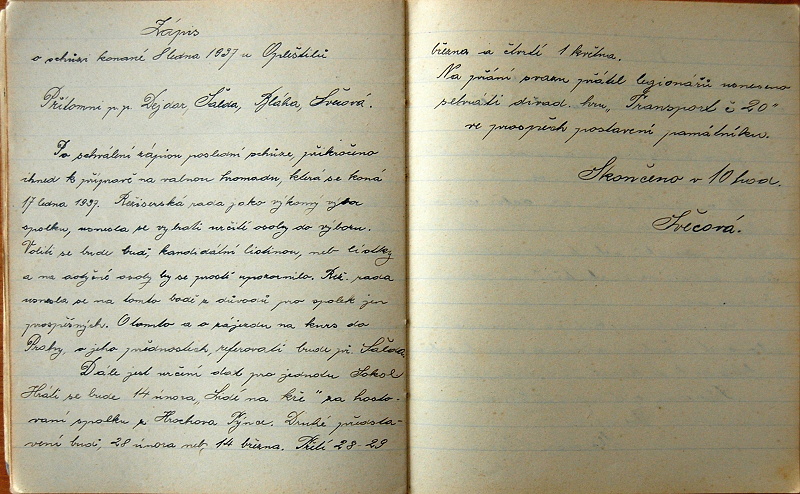 Zápis
o schůzi konané 8 ledna 1937 u Opleštilů
Přítomni p.p. Dejdar, Šalda, Bláha, Švecová.
Po schválení zápisu poslední schůze, přikročeno
ihned k přípravě na valnou hromadu, která se koná
17 ledna 1937. Režiserská rada jako výkoný
spolku, usnesla se vybrati určité osoby do výboru.
Voliti se bude buď, kandidátní listinou, neb lístky
a na určité osoby by se prostě upozornilo. Rež. rada
usnesla se na tomto bodě z důvodů pro spolek jen
prospěšných. O tomto a o zájezdu na kurs do
Prahy, o jeho přednostech, referovati bude př. Šalda
Dále jest určení dat pro jednotu Sokol
Hráti se bude 14 února, „Lidé na kře" za hosto-
vaní spolku z Hrochova Týnce. Druhé předsta-
vení buď, 28 února neb, 14 března. Třetí 28-29
března a čtvrtí 1 května.
Na přání svazu přátel legionářů usneseno
sehráti divad. hru, Transport č 20"
ve prospěch postavení památníku.
Skončeno v 10 hod.
Švecová.